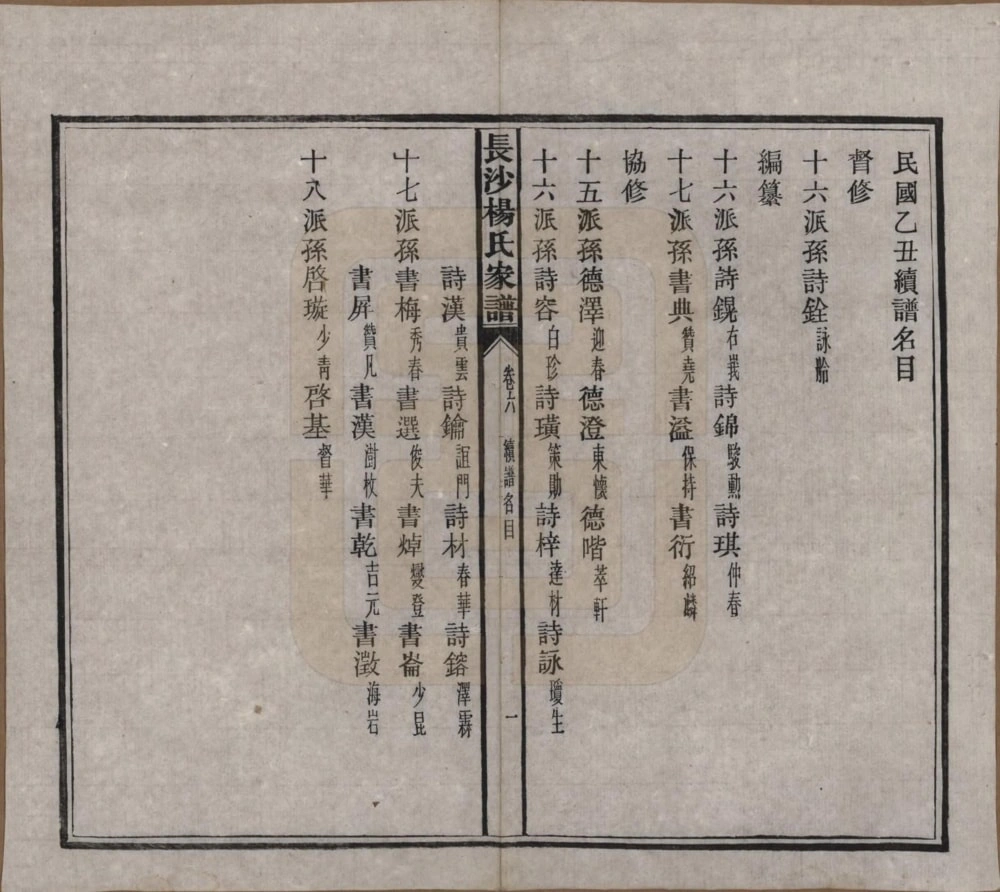 民國乙丑續譜名目
督修
十六派孫詩銓詠齡
編纂
十六派孫詩鎤右義詩錦駿勳詩琪仲春
十七派孫書典贊堯書溢保持書衍紹麟
協修
十五派孫德澤迎春德澄東懷德喈萃軒
十六派孫詩容白珍詩璜策勛詩梓達材詩詠瓊生
長沙楊氏家譜
卷六
續譜名目
一
詩漢貴雲詩鑰誼門詩材春華詩鎔澤霖
十七派孫書梅秀春書選俊夫書焯燮登書崙少昆
書屏贊凡書漢澍枚書乾吉元書澂海岩
十八派孫啓璇少青啓基督華